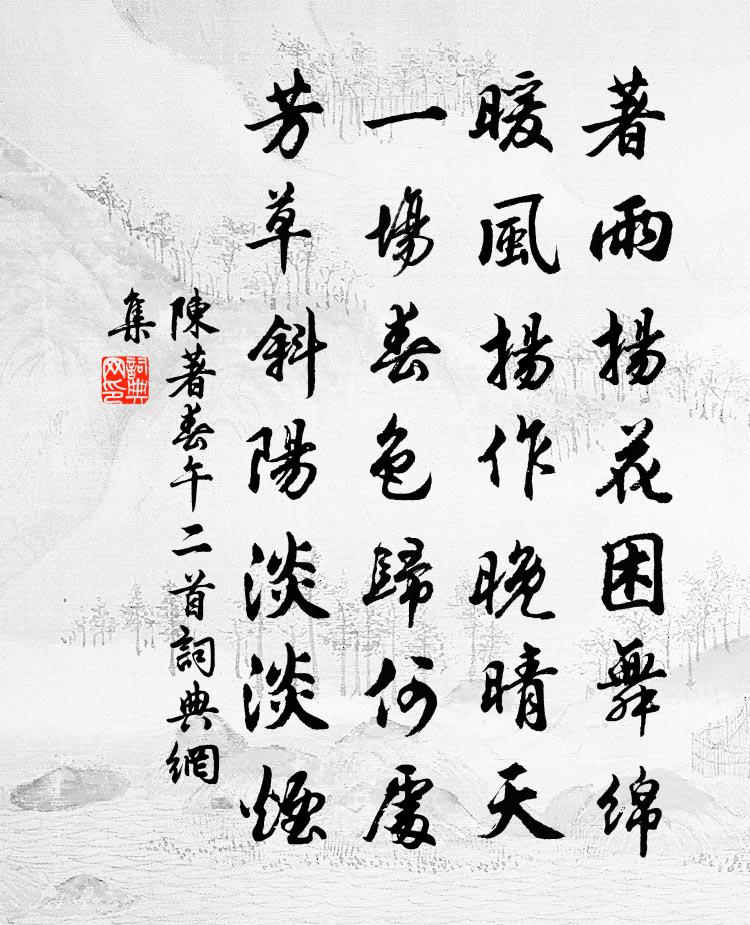 著雨揚花困舞綿
暖風揚作晚晴天
一場春色歸何處
芳草斜陽淡淡煙
陳著春午二首詞典網
集
詞典
网印